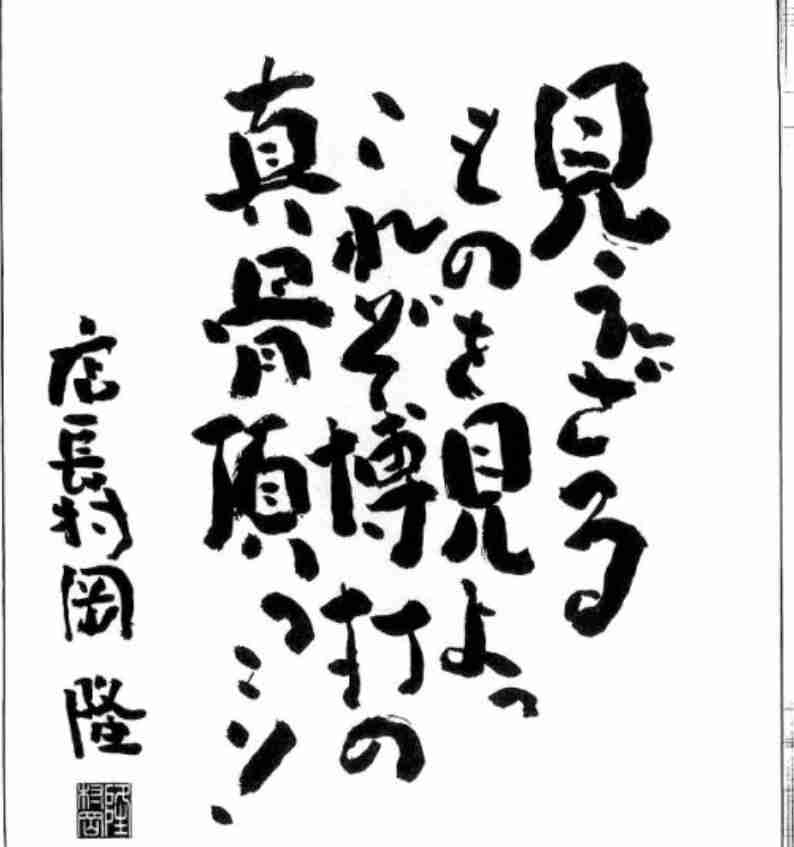 見えざる
ものを見よっ
これぞ博打の
真骨頂っ
店長村岡 隆
隆
村岡